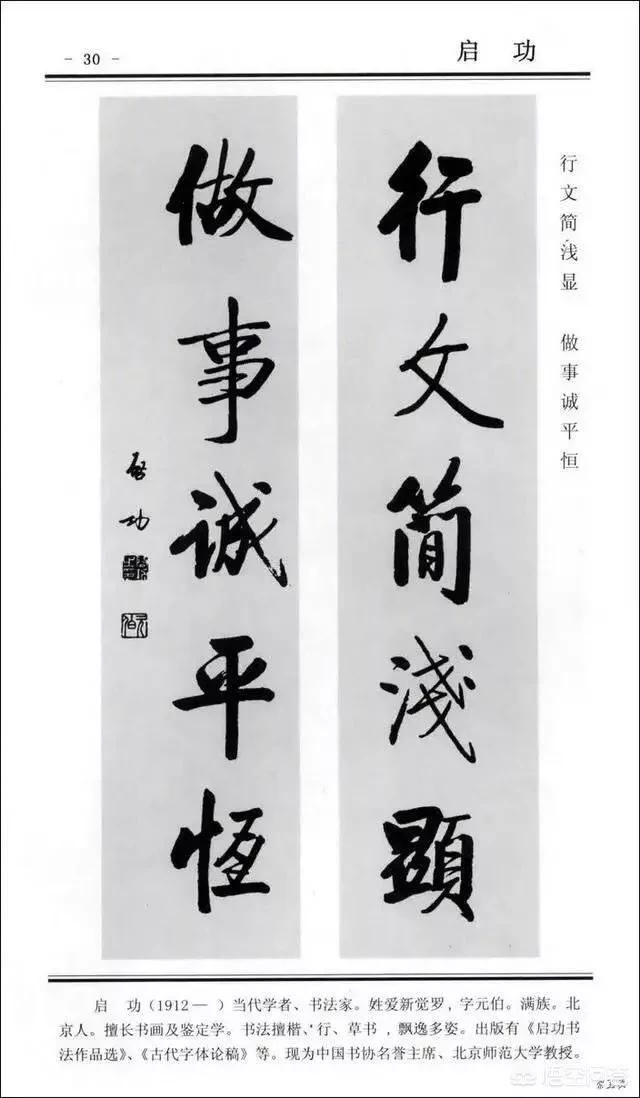 - 30 -
启 功
行文简浅显 做事诚平恒
行文简淺顯
做事诚平恆
启功
启 功(1912— )当代学者、书法家。姓爱新觉罗,字元伯。满族。北
京人。擅长书画及鉴定学。书法擅楷、行、草书,飘逸多姿。出版有《启功书
法作品选》、《古代字体论稿》等。现为中国书协名誉主席、北京师范大学教授。
悟空问答